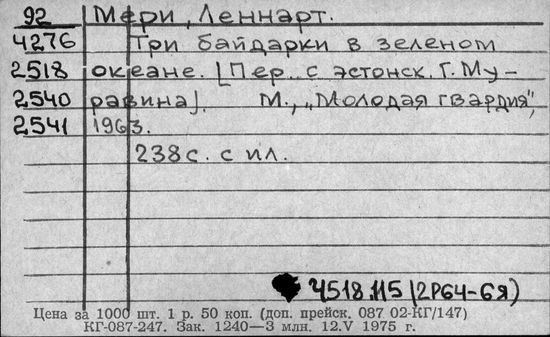 92 Мери, Леннарт.
4276 Три байдарки в зеленом
2518 океане. [Пер. с эстонск. Г. Му-
2540 равина]. М., „Молодая гвардия",
2541 1963.
238 с. с ил.
Ч518.115 (2Р64-6Я)
Цена за 1000 шт. 1 р. 50 коп. (доп. прейск. 087 02-КГ/147)
КГ-087-247. Зак. 1240—3 млн. 12.V 1975 г.